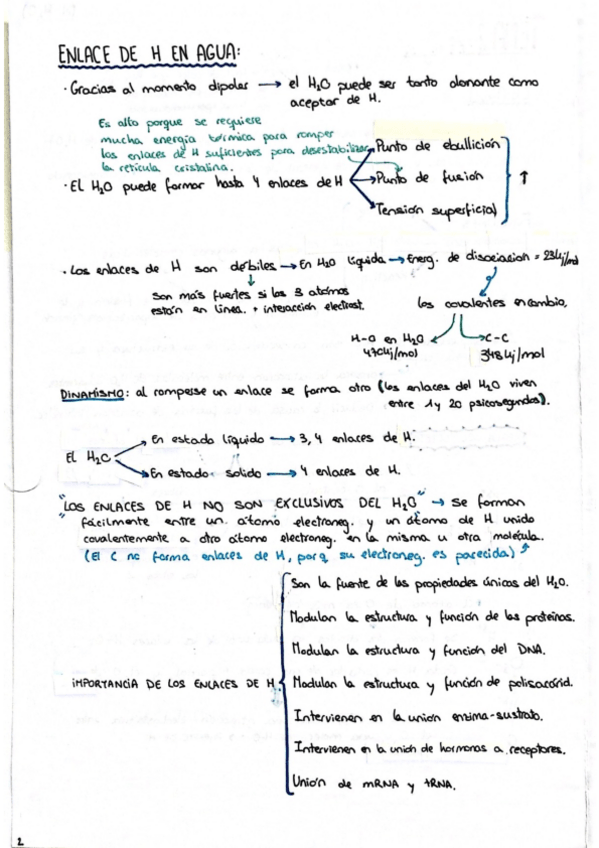 ENLACE DE H EN AGUA:
· Gracias al momento dipolar → el H₂O puede ser tanto donante como
aceptar de H.
Es alto porque se requiere
mucha energía térmica para romper
los enlaces de H suficientes para desestabilizar
la retícula cristalina.
Punto de ebullición
· El H₂O puede formar hasta 4 enlaces de H → Punto de fusión ↑
Tensión superficial
· Los enlaces de H son débiles → En H₂O líquida → Energ. de disociacion = 23kj/mol
Son más fuertes si los 3 átomos
están en línea. + interacción electrost.
los covalentes en cambio,
H-O en H₂O
470kj/mol
C-C
348kj/mol
DINAMISMO: al romperse un enlace se forma otro (los enlaces del H₂O viven
entre 1 y 20 psicosegundos).
En estado líquido → 3,4 enlaces de H.
El H₂O
En estado solido → 4 enlaces de H.
"LOS ENLACES DE H NO SON EXCLUSIVOS DEL H₂O" → se forman
fácilmente entre un átomo electroneg. y un átomo de H unido
covalentemente a otro átomo electroneg. en la misma u otra molécula.
(El C no forma enlaces de H, porq su electroneg. es parecida)
Son la fuente de las propiedades únicas del H₂O.
Modulan la estructura y función de las proteínas.
Modulan la estructura y función del DNA.
IMPORTANCIA DE LOS ENLACES DE H
Modulan la estructura y función de polisacárid.
Intervienen en la union enzima-sustrato.
Intervienen en la unión de hormonas a receptores.
Unión de mRNA y tRNA.
2